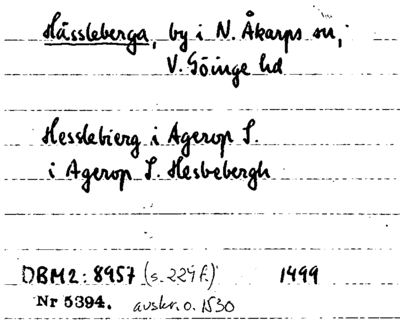 Hässleberga, by i N. Åkarps sn,
V. Göinge hd
Hesslebierg i Agerop S.
i Agerop S. Hesbebergh
DBM2: 8957 (s. 224 f.) 1499
Nr 5394. avskr. o. 1530